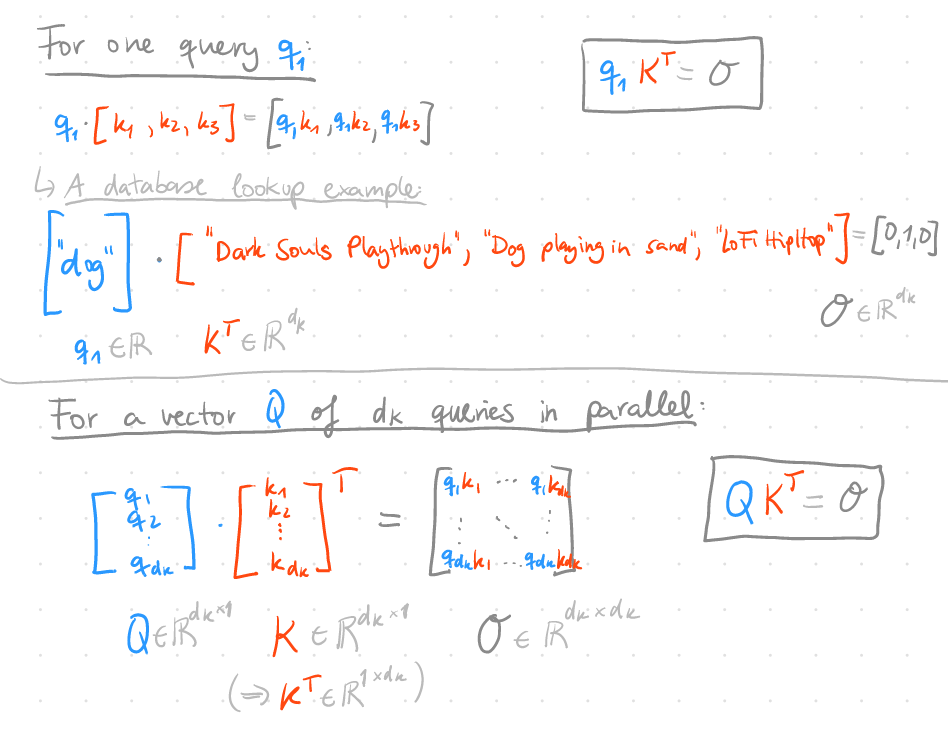 For one query q₁:
q₁ Kᵀ = O
q₁ · [k₁, k₂, k₃] = [q₁k₁, q₁k₂, q₁k₃]
↳ A database lookup example:
["dog"] · ["Dark Souls Playthough", "Dog playing in sand", "LoFi HipHop"] = [0,1,0]
O ∈ ℝ^dk
q₁ ∈ ℝ Kᵀ ∈ ℝ^dk
For a vector Q of dk queries in parallel:
[q₁ q₂ ⋮ q_dk] · [k₁ k₂ ⋮ k_dk]ᵀ = [q₁k₁ ⋯ q₁k_dk ⋮ ⋱ ⋮ q_dk k₁ ⋯ q_dk k_dk]
Q Kᵀ = O
Q ∈ ℝ^dk×1 K ∈ ℝ^dk×1 O ∈ ℝ^dk×dk
(⇒ Kᵀ ∈ ℝ^1×dk)